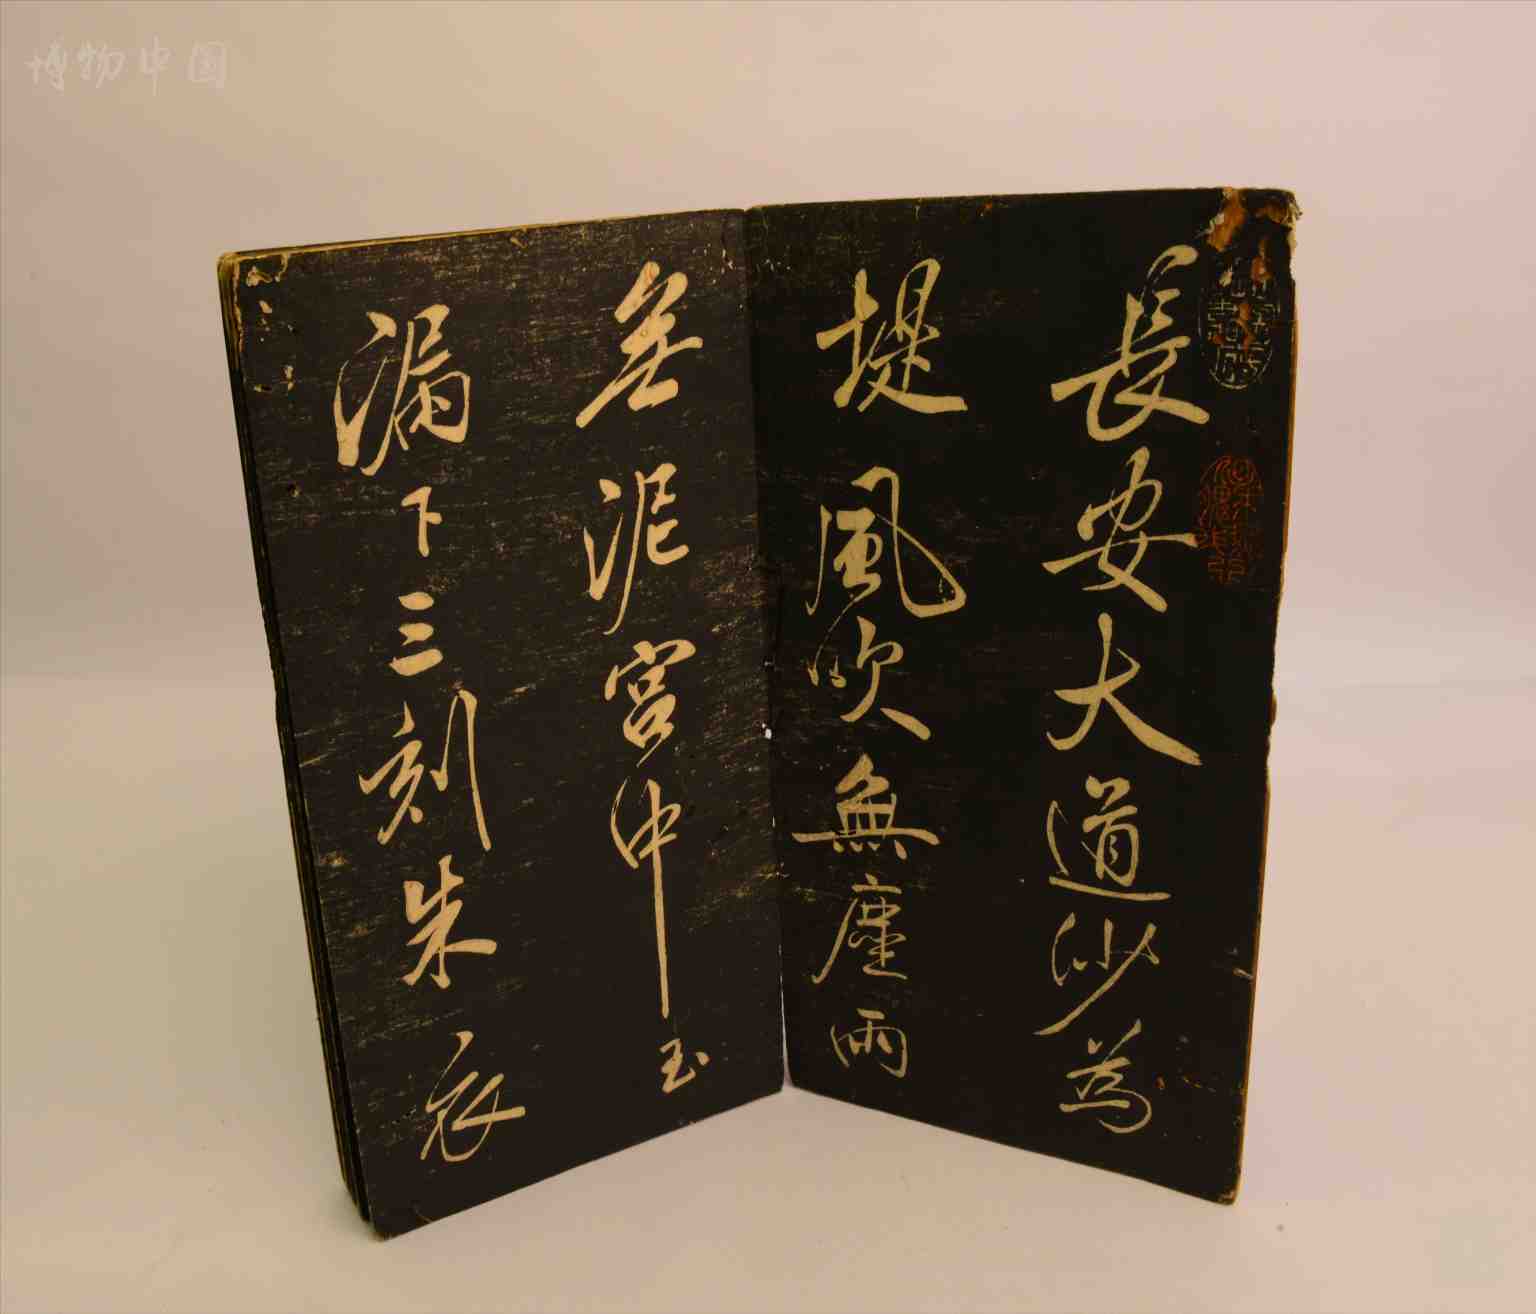 博物中国
長安大道沙為
堤風吹無塵雨
無泥宮中玉
漏下三刻朱
衣